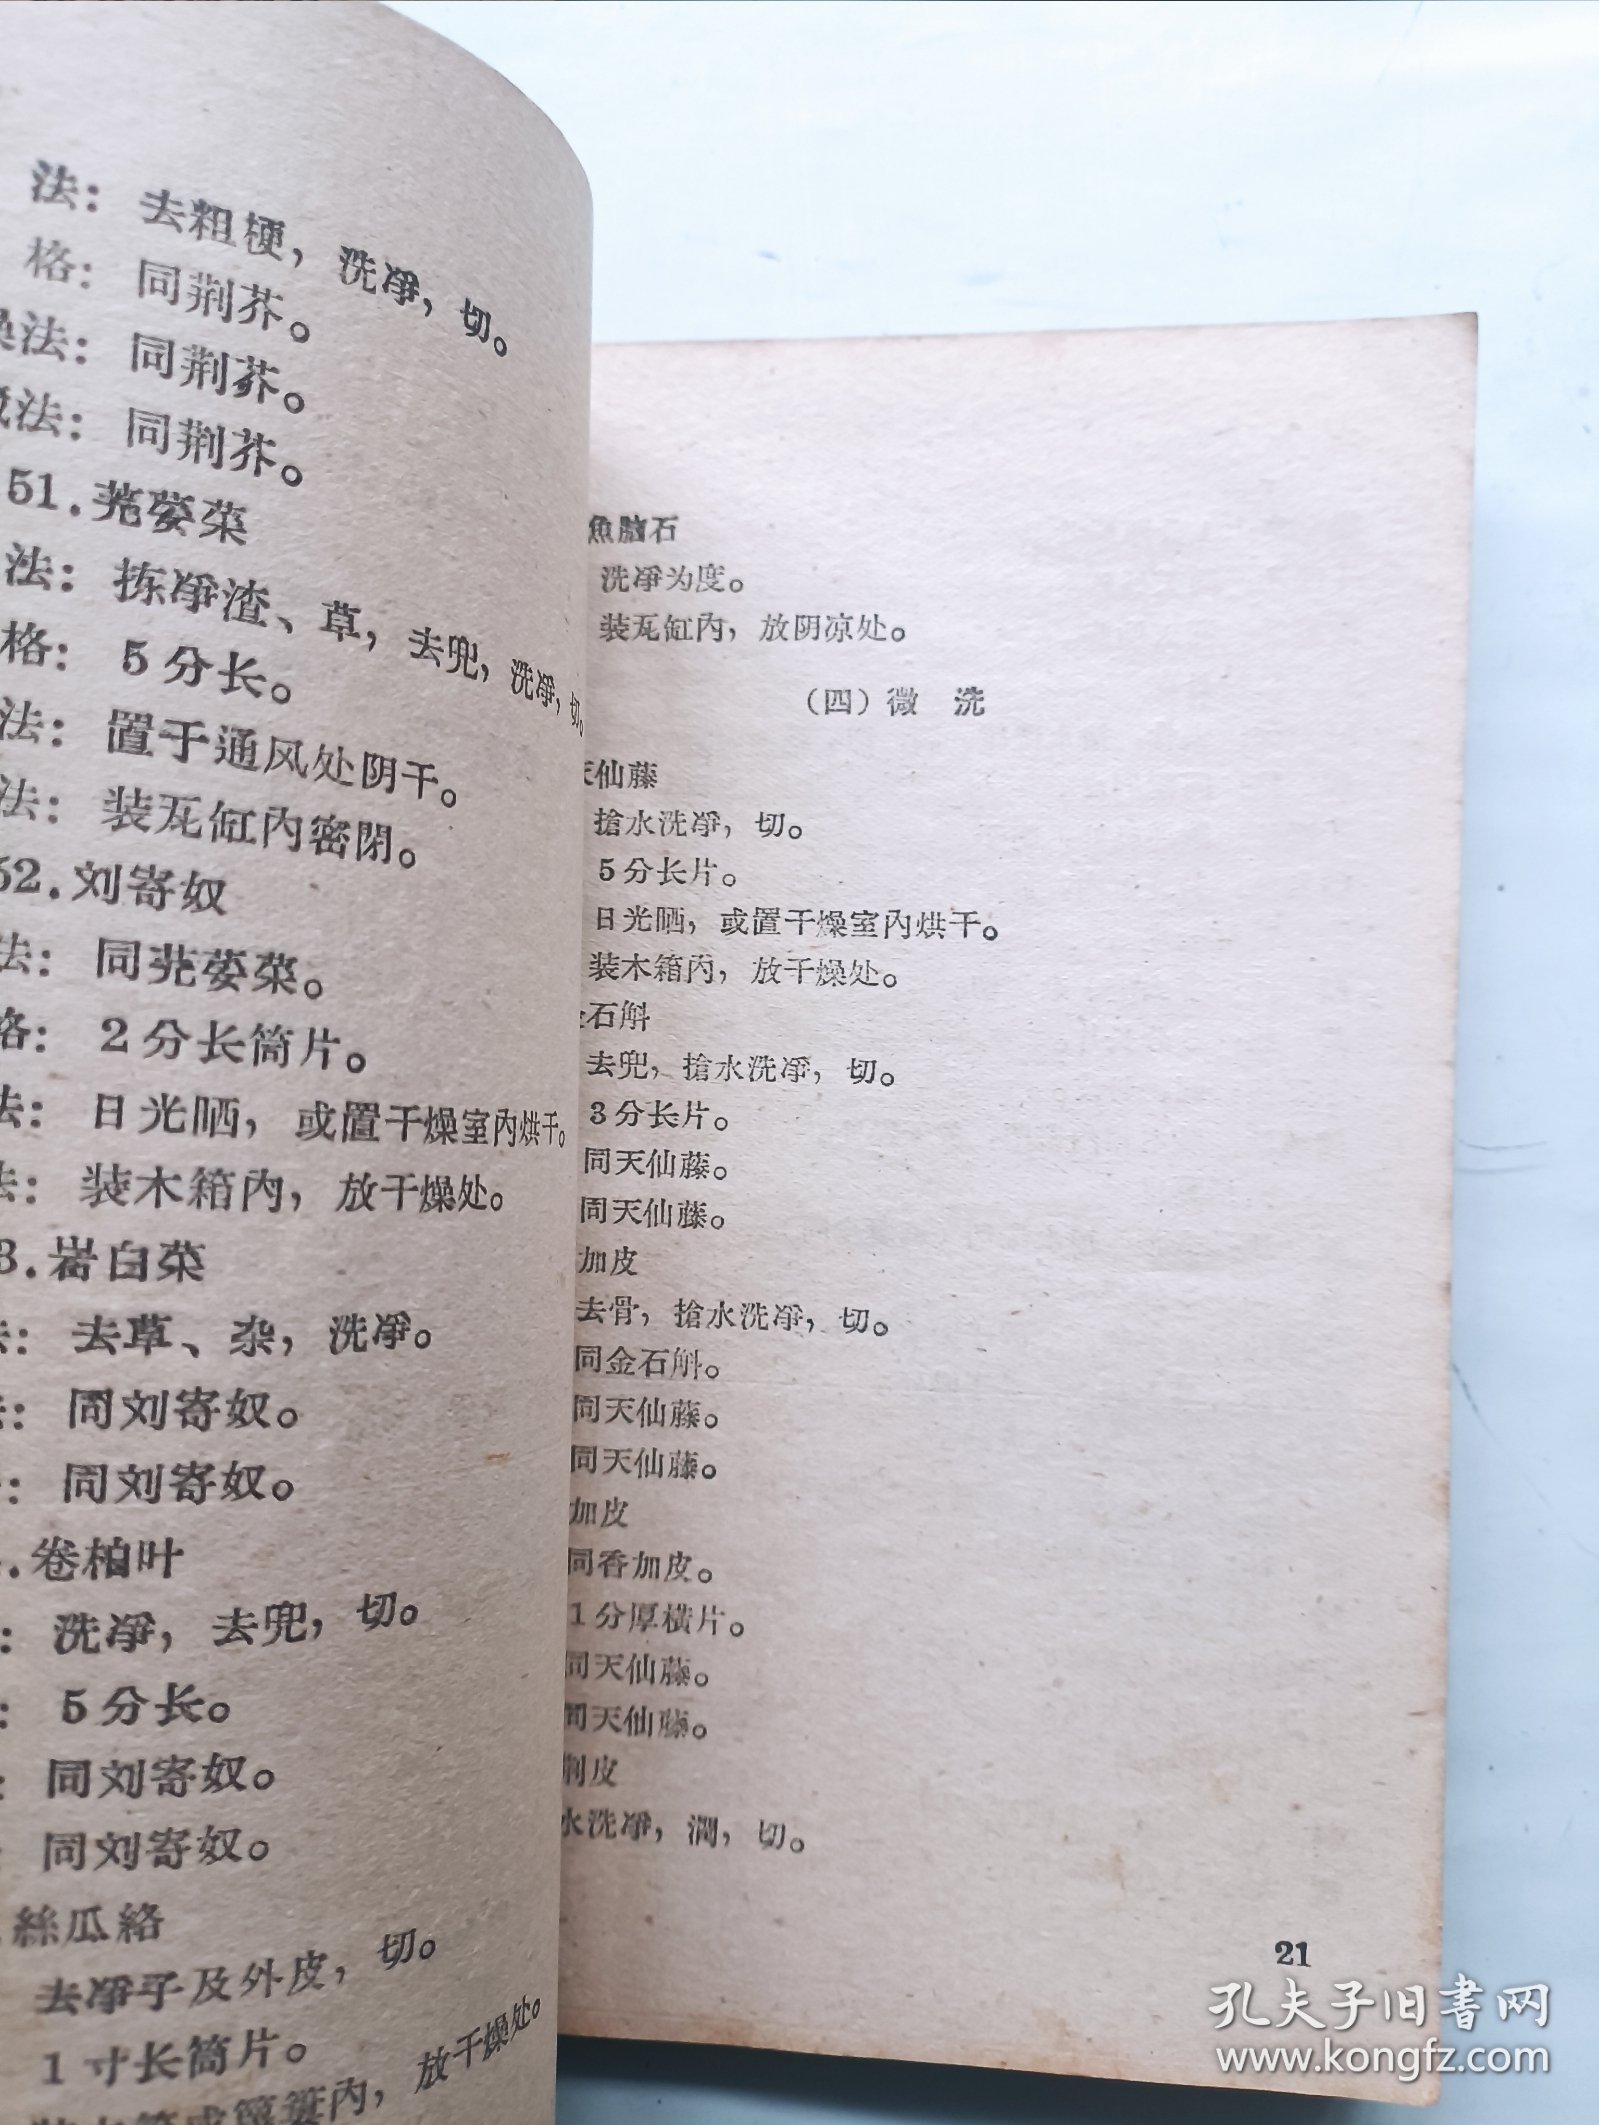 法：去粗梗，洗凈，切。
格：同荆芥。
法：同荆芥。
法：同荆芥。
51.芫荽菜
法：拣凈渣、草，去兜，洗凈，切。
格：5分长。
法：置于通风处阴干。
法：装瓦缸內密閉。
52.刘寄奴
法：同芫荽菜。
格：2分长筒片。
法：日光晒，或置干燥室內烘干。
法：装木箱內，放干燥处。
3.岩白菜
法：去草、杂，洗凈。
：同刘寄奴。
：同刘寄奴。
.卷柏叶
：洗凈，去兜，切。
：5分长。
：同刘寄奴。
同刘寄奴。
絲瓜絡
去凈子及外皮，切。
1寸长筒片。
內，放干燥处。
魚脑石
洗凈为度。
装瓦缸內，放阴凉处。
（四）微 洗
天仙藤
搶水洗凈，切。
5分长片。
日光晒，或置干燥室內烘干。
装木箱內，放干燥处。
石斛
去兜，搶水洗凈，切。
3分长片。
同天仙藤。
同天仙藤。
加皮
去骨，搶水洗凈，切。
同金石斛。
同天仙藤。
同天仙藤。
加皮
同香加皮。
1分厚横片。
同天仙藤。
同天仙藤。
荆皮
水洗凈，潤，切。
21
孔夫子旧書网
www.kongfz.com